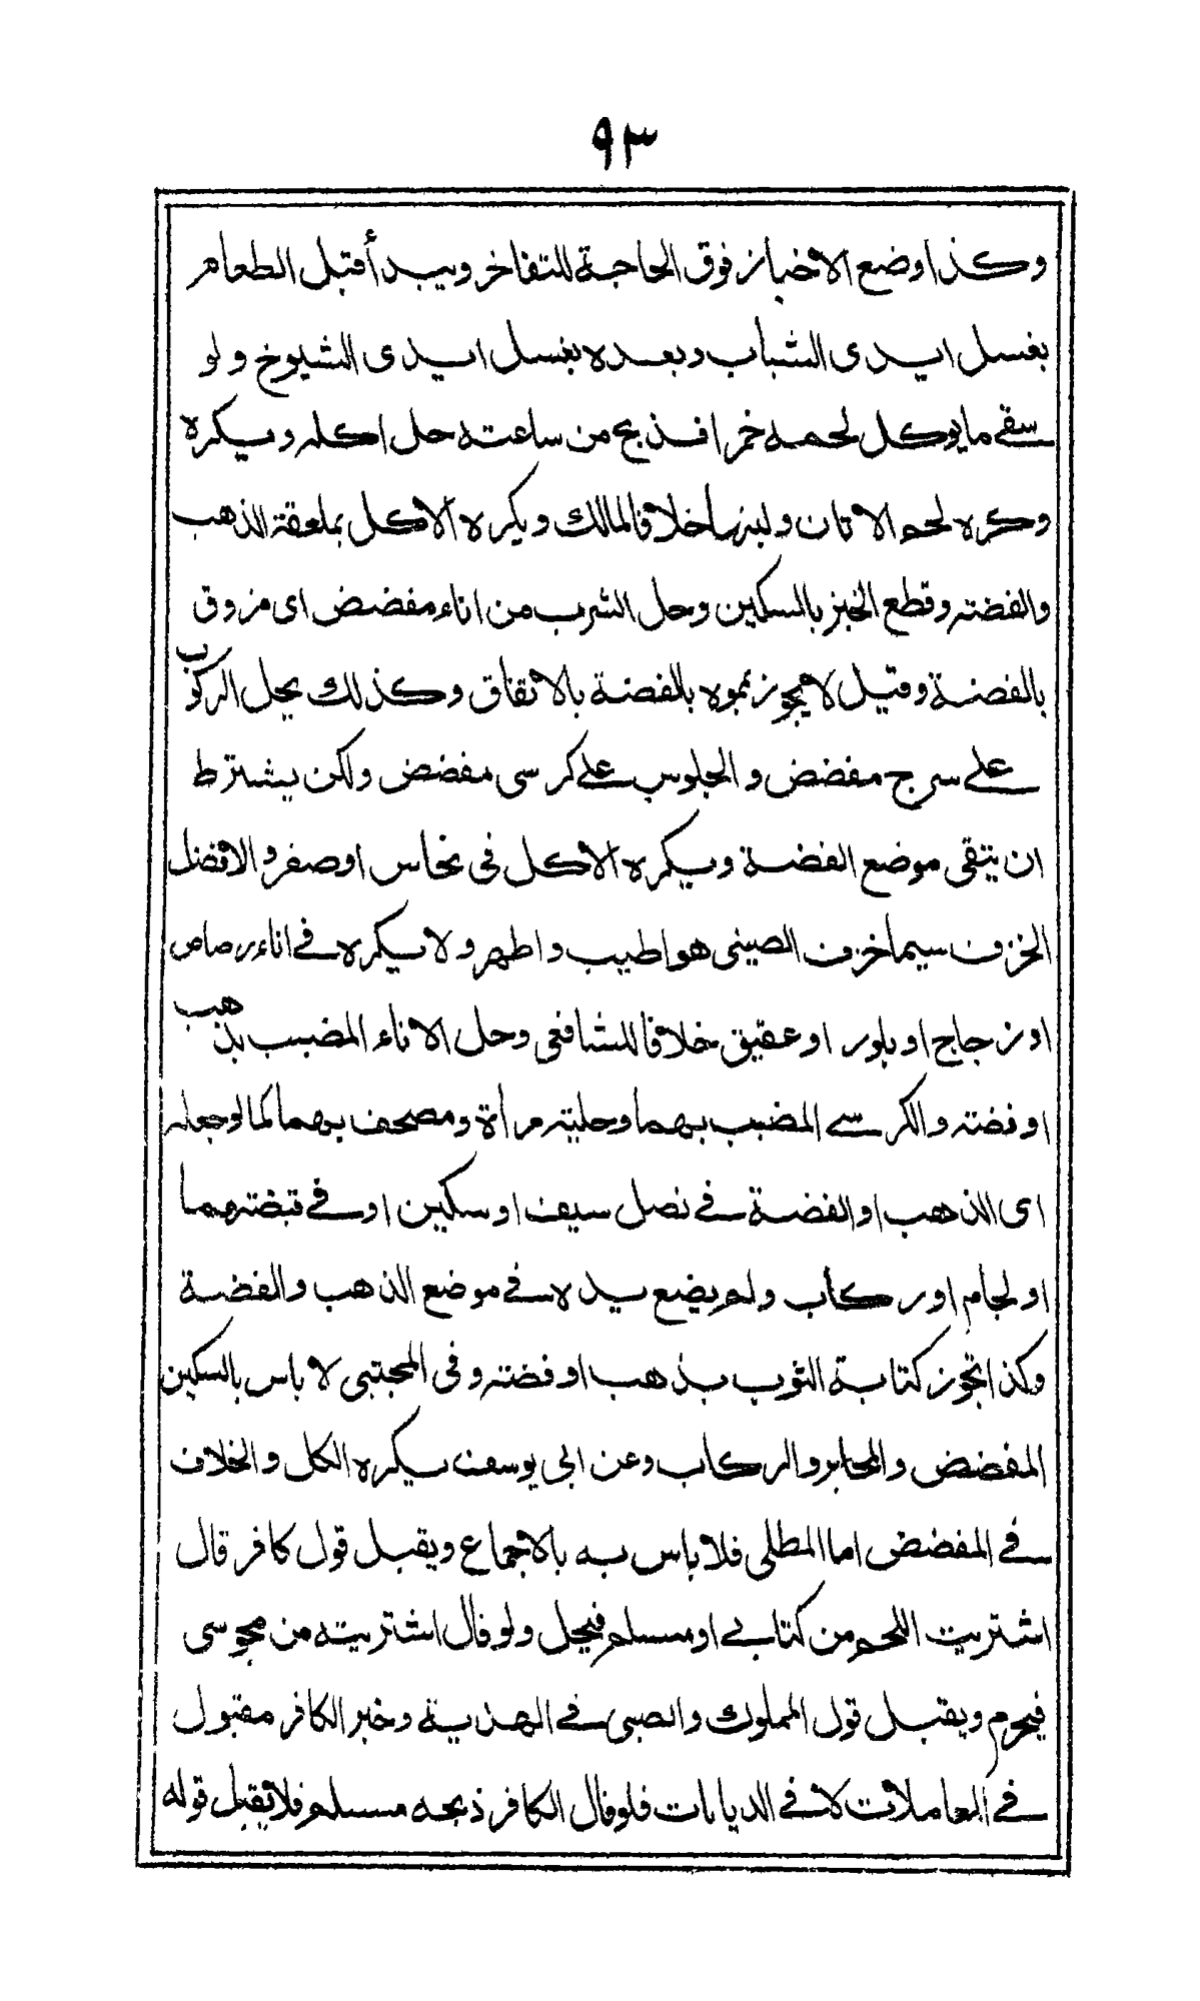 ٩٣
وكذا وضع الاخباز فوق الحاجة للتفاخر ويبدأ قبل الطعام
بغسل ايدى الشباب وبعده بغسل ايدى الشيوخ ولو
سقے مايوكل لحمه خمرا فذبح من ساعته حل اكله ويكره
وكره لحم الاتان ولبنها خلافا لمالك ويكره الاكل بملعقة الذهب
والفضته وقطع الخبز بالسكين وحل الشرب من اناء مفضض اى مزوق
بالفضة وقيل لا يجوز نموه بالفضة بالاتفاق وكذلك يحل الركوب
علے سرج مفضض والجلوس علے كرسى مفضض ولكن يشترط
ان يتقى موضع الفضة ويكره الاكل فى نحاس اوصفر والافضل
الخزف سيما خزف الصينى هو اطيب واطهر ولا يكره فے اناء رصاص
او زجاج او بلور او عقيق خلافا للشافعى وحل الاناء المضبب بذهب
او فضته والكرسے المضبب بهما وحليته مرأة ومصحف بهما كما لوجعله
اى الذهب او الفضة فے نصل سيف او سكين او فے قبضتهما
او لجام او ركاب ولم يضع يده فے موضع الذهب والفضة
وكذا تجوز كتابة الثوب بذهب او فضته وفى المجتبى لا باس بالسكين
المفضض والمحابر والركاب وعن ابى يوسف يكره الكل والخلاف
فے المفضض اما المطلى فلا باس به بالاجماع ويقبل قول كافر قال
اشتريت اللحم من كتابے او مسلم فيحل ولو قال اشتريته من مجوسى
فيحرم ويقبل قول المملوك والصبى فے الهدية وخبر الكافر مقبول
فے المعاملات لا فے الديانات فلو قال الكافر ذبحه مسلم فلا يقبل قوله